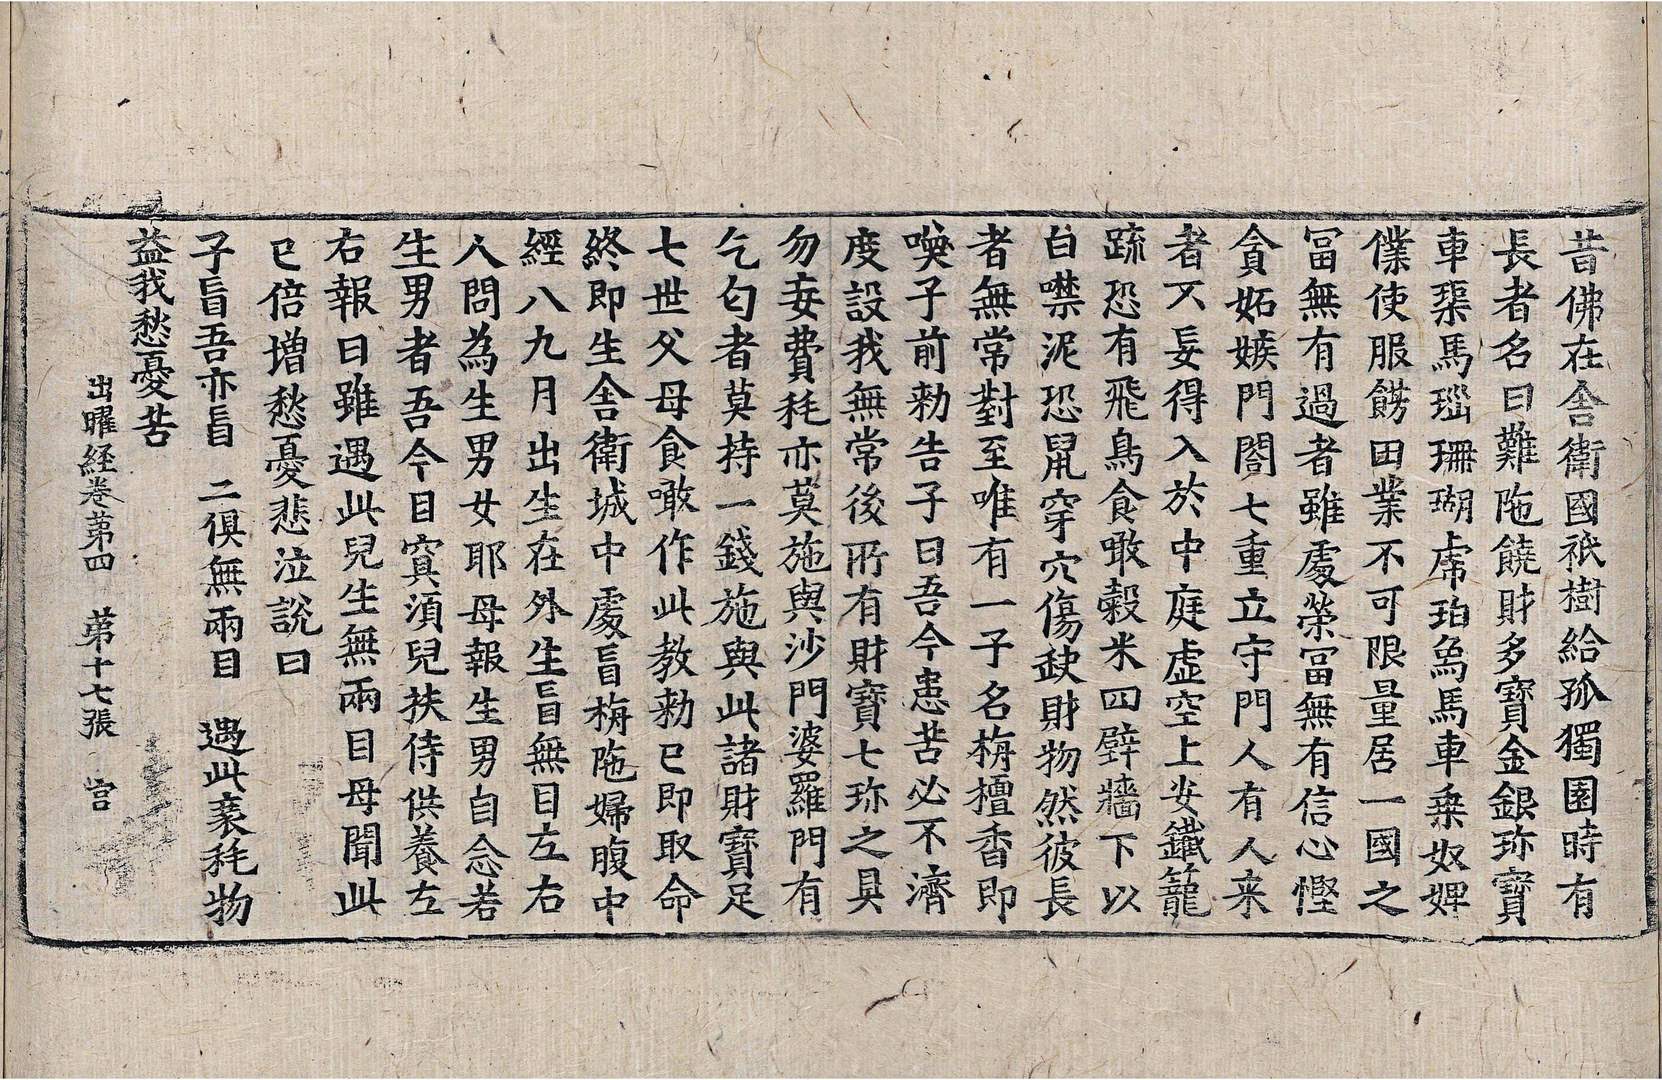 昔佛在舎衛國祇樹給孤獨園時有
長者名曰難陁饒財多寶金銀珎寶
車𤦲馬瑙珊瑚席珀象馬車乗奴婢
僕使服餝田業不可限量居一國之
冨無有過者雖處榮冨無有信心慳
貪妬嫉門閤七重立守門人有人来
者不妄得入於中庭虚空上安鐵籠
䟽恐有飛鳥食噉糓米四壁牆下以
白㘗泥恐鼠穿穴傷缺財物然彼長
者無常對至唯有一子名栴檀香即
喚子前勑告子曰吾今患苦必不濟
度設我無常後所有財寶七珎之具
勿妄費耗亦莫施與沙門婆羅門有
乞匃者莫持一錢施與此諸財寶足
七世父母食噉作此教勑已即取命
終即生舎衛城中處盲栴陁婦腹中
經八九月出生在外生盲無目左右
人問為生男女耶母報生男自念若
生男者吾今目㝠湏兒扶侍供養左
右報曰雖遇此兒生無兩目母聞此
已倍增愁憂悲泣說曰
子盲吾亦盲 二俱無兩目 遇此衰耗物
益我愁憂苦
出曜経卷第四 第十七張 宫